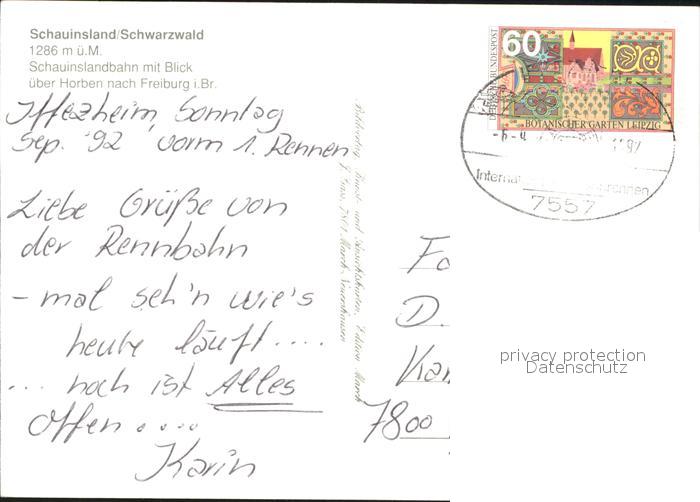 Schauinsland/Schwarzwald
1286 m ü.M.
Schauinslandbahn mit Blick
über Horben nach Freiburg i.Br.
Iffezheim, Sonntag
Sep. '92, vorm 1. Rennen
Liebe Grüße von
der Rennbahn
- mal seh'n wie's
heute läuft....
... noch ist Alles
offen....
Karin
60
DEUTSCHE BUNDESPOST
BOTANISCHER GARTEN LEIPZIG
Internat
rennen
7557
Fa
D.
Kar
7800
privacy protection
Datenschutz